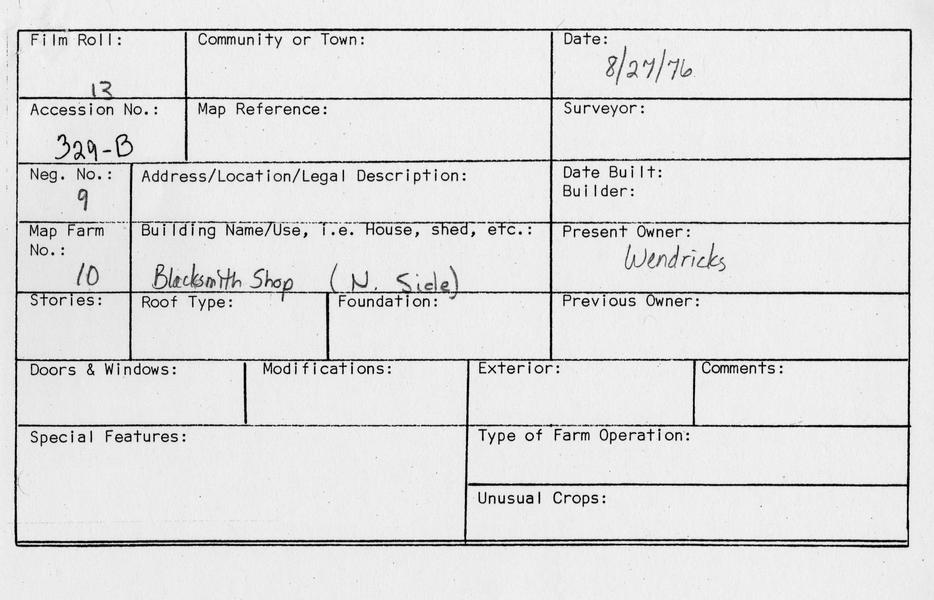 Film Roll: Community or Town: Date:
13 8/27/76
Accession No.: Map Reference: Surveyor:
329-B
Neg. No.: Address/Location/Legal Description: Date Built:
9 Builder:
Map Farm Building Name/Use, i.e. House, shed, etc.: Present Owner:
No.: Wendricks
10 Blacksmith Shop (N. Side)
Stories: Roof Type: Foundation: Previous Owner:
Doors & Windows: Modifications: Exterior: Comments:
Special Features: Type of Farm Operation:
Unusual Crops: